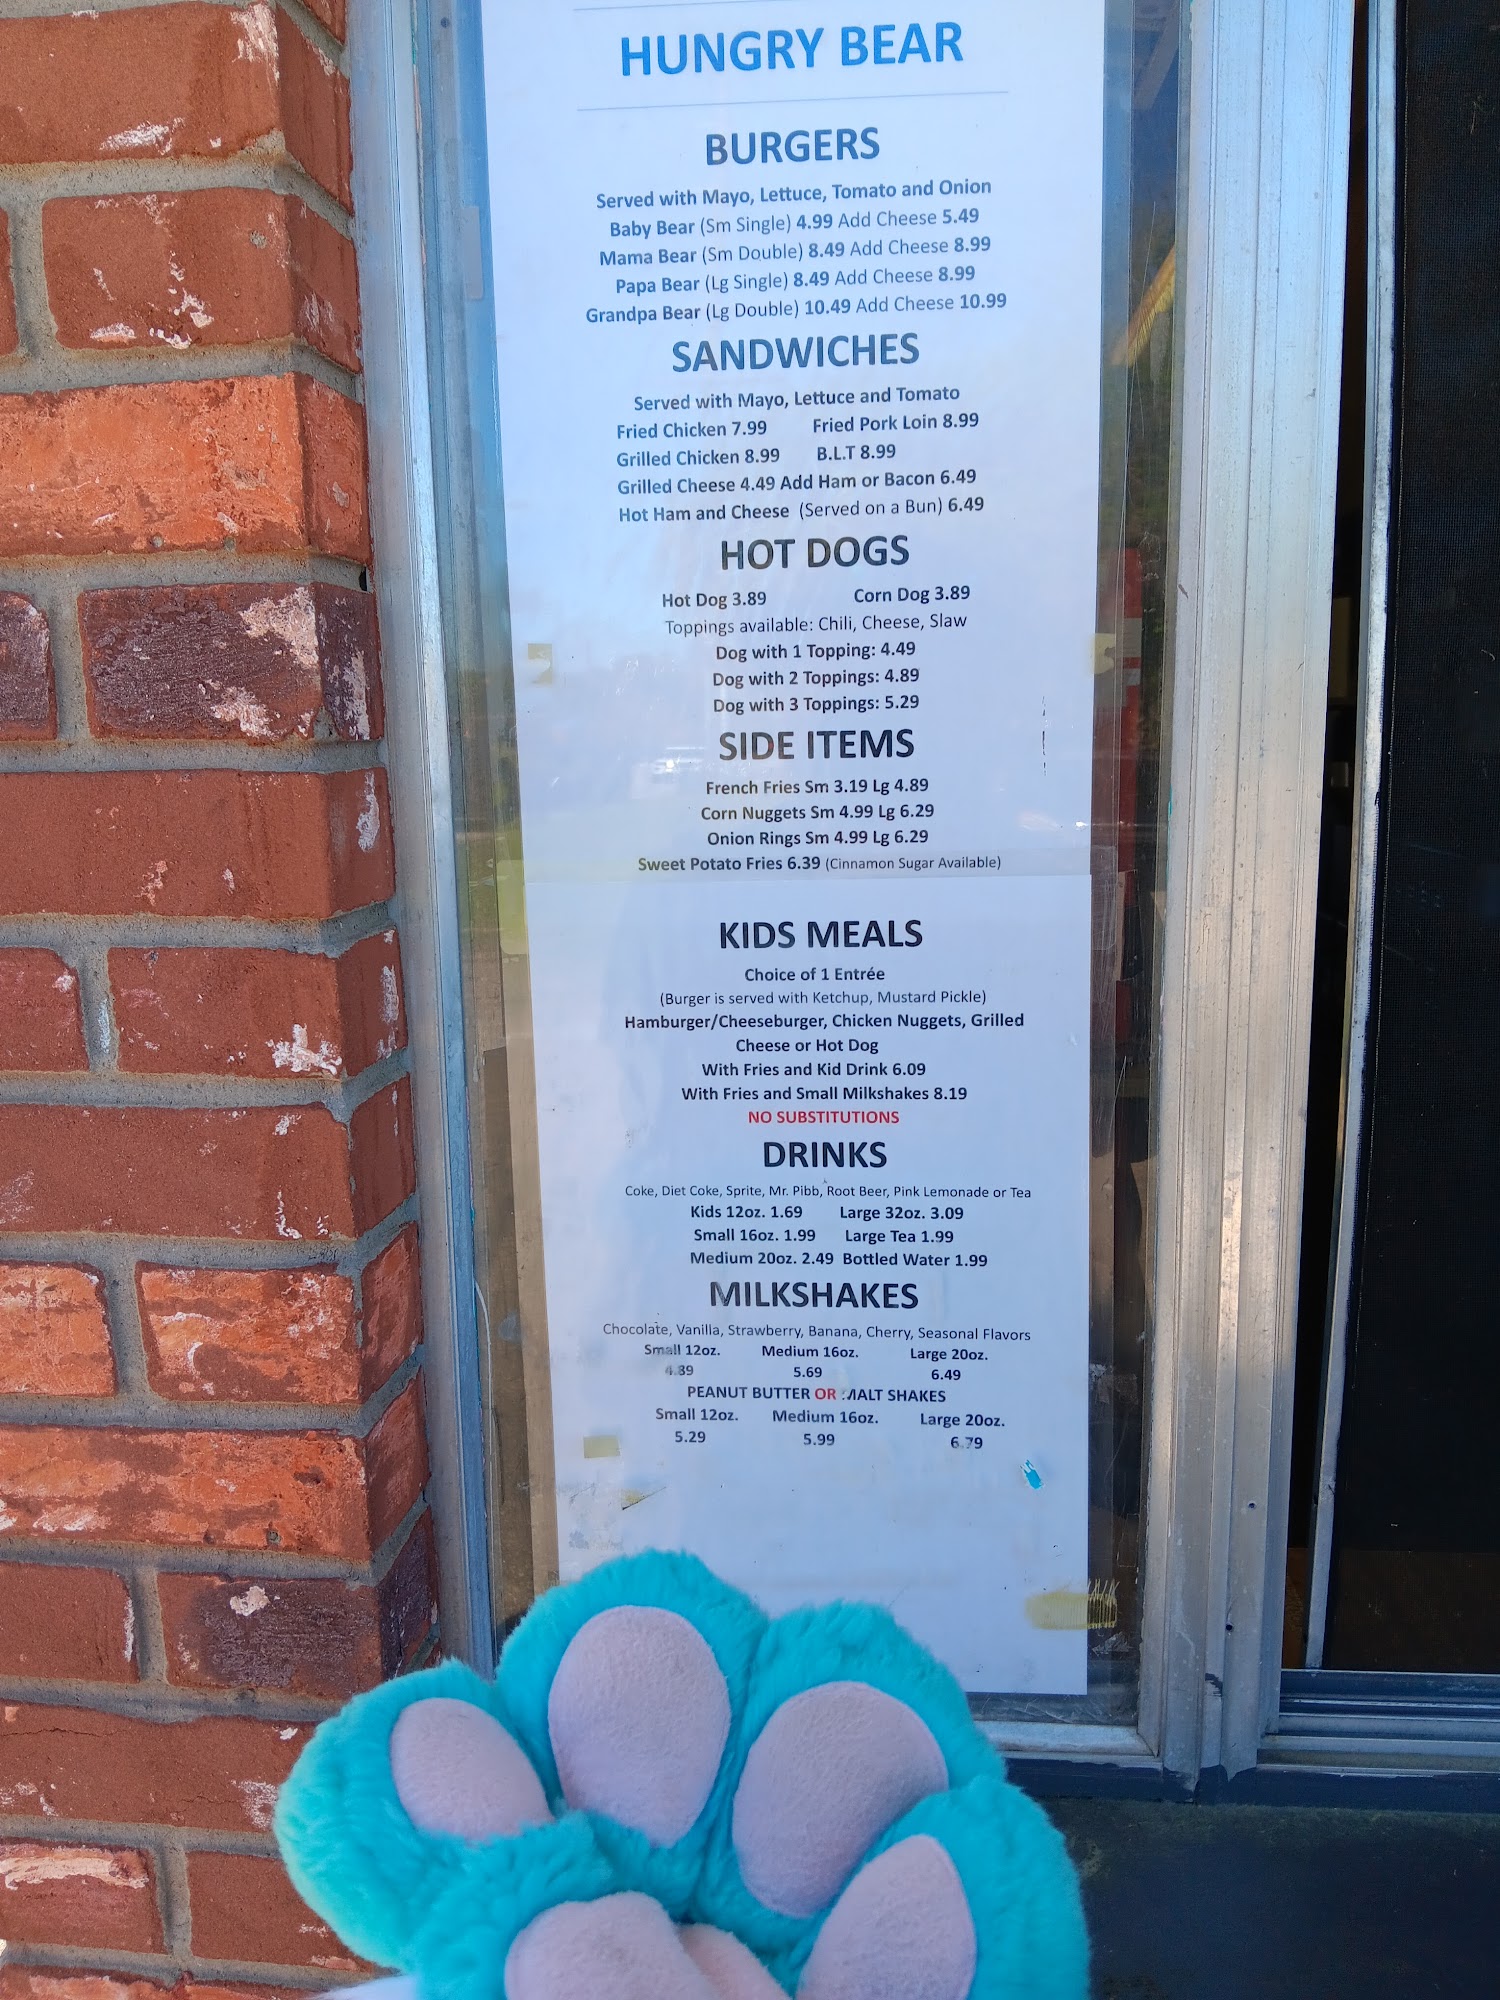 HUNGRY BEAR
BURGERS
Served with Mayo, Lettuce, Tomato and Onion
Baby Bear (Sm Single) 4.99 Add Cheese 5.49
Mama Bear (Sm Double) 8.49 Add Cheese 8.99
Papa Bear (Lg Single) 8.49 Add Cheese 8.99
Grandpa Bear (Lg Double) 10.49 Add Cheese 10.99
SANDWICHES
Served with Mayo, Lettuce and Tomato
Fried Chicken 7.99 Fried Pork Loin 8.99
Grilled Chicken 8.99 B.L.T 8.99
Grilled Cheese 4.49 Add Ham or Bacon 6.49
Hot Ham and Cheese (Served on a Bun) 6.49
HOT DOGS
Hot Dog 3.89 Corn Dog 3.89
Toppings available: Chili, Cheese, Slaw
Dog with 1 Topping: 4.49
Dog with 2 Toppings: 4.89
Dog with 3 Toppings: 5.29
SIDE ITEMS
French Fries Sm 3.19 Lg 4.89
Corn Nuggets Sm 4.99 Lg 6.29
Onion Rings Sm 4.99 Lg 6.29
Sweet Potato Fries 6.39 (Cinnamon Sugar Available)
KIDS MEALS
Choice of 1 Entrée
(Burger is served with Ketchup, Mustard Pickle)
Hamburger/Cheeseburger, Chicken Nuggets, Grilled
Cheese or Hot Dog
With Fries and Kid Drink 6.09
With Fries and Small Milkshakes 8.19
NO SUBSTITUTIONS
DRINKS
Coke, Diet Coke, Sprite, Mr. Pibb, Root Beer, Pink Lemonade or Tea
Kids 12oz. 1.69 Large 32oz. 3.09
Small 16oz. 1.99 Large Tea 1.99
Medium 20oz. 2.49 Bottled Water 1.99
MILKSHAKES
Chocolate, Vanilla, Strawberry, Banana, Cherry, Seasonal Flavors
Small 12oz. Medium 16oz. Large 20oz.
4.89 5.69 6.49
PEANUT BUTTER OR MALT SHAKES
Small 12oz. Medium 16oz. Large 20oz.
5.29 5.99 6.79